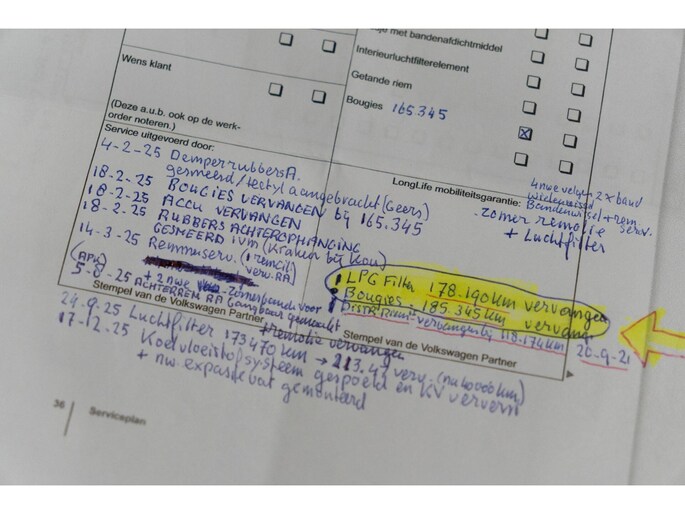 je met bandenafdichtmiddel
Interieurluchtfilterelement
Wens klant
Getande riem
Bougies 165.345
(Deze a.u.b. ook op de werk-
order noteren.)
Service uitgevoerd door:
4-2-25 Demperrubbers A.
gesmeerd/tectyl aangebracht (Geers)
18-2-25 BOUGIES VERVANGEN bij 165.345
18-2-25 ACCU VERVANGEN
18-2-25 RUBBERS ACHTEROPHANGING
GESMEERD ivm (Kraken bij kou)
14-3-25 Remmserv. (1 remcil) verv. RA)
(APK)
5-8-25 + 2 nwe voor
ACHTERREM RA Gangbaar gemaakt
Stempel van de Volkswagen Partner
LongLife mobiliteitsgarantie:
4 nwe velgen 2x band
Bandenwissel + rem serv.
zomer remolie
+ Luchtfilter
LPG Filter 178.190 km vervangen
Bougies 185.345 km vervang
Distr. Riem vervangen bij 118.174 km 20-9-21
Stempel van de Volkswagen Partner
24-9-25 Luchtfilter 173470 km → 213.47 verv. (na 40000 km)
+ remolie vervangen
17-12-25 Koelvloeistofsysteem gespoeld en KV ververst
+ nw. expansievat gemonteerd
36 Serviceplan